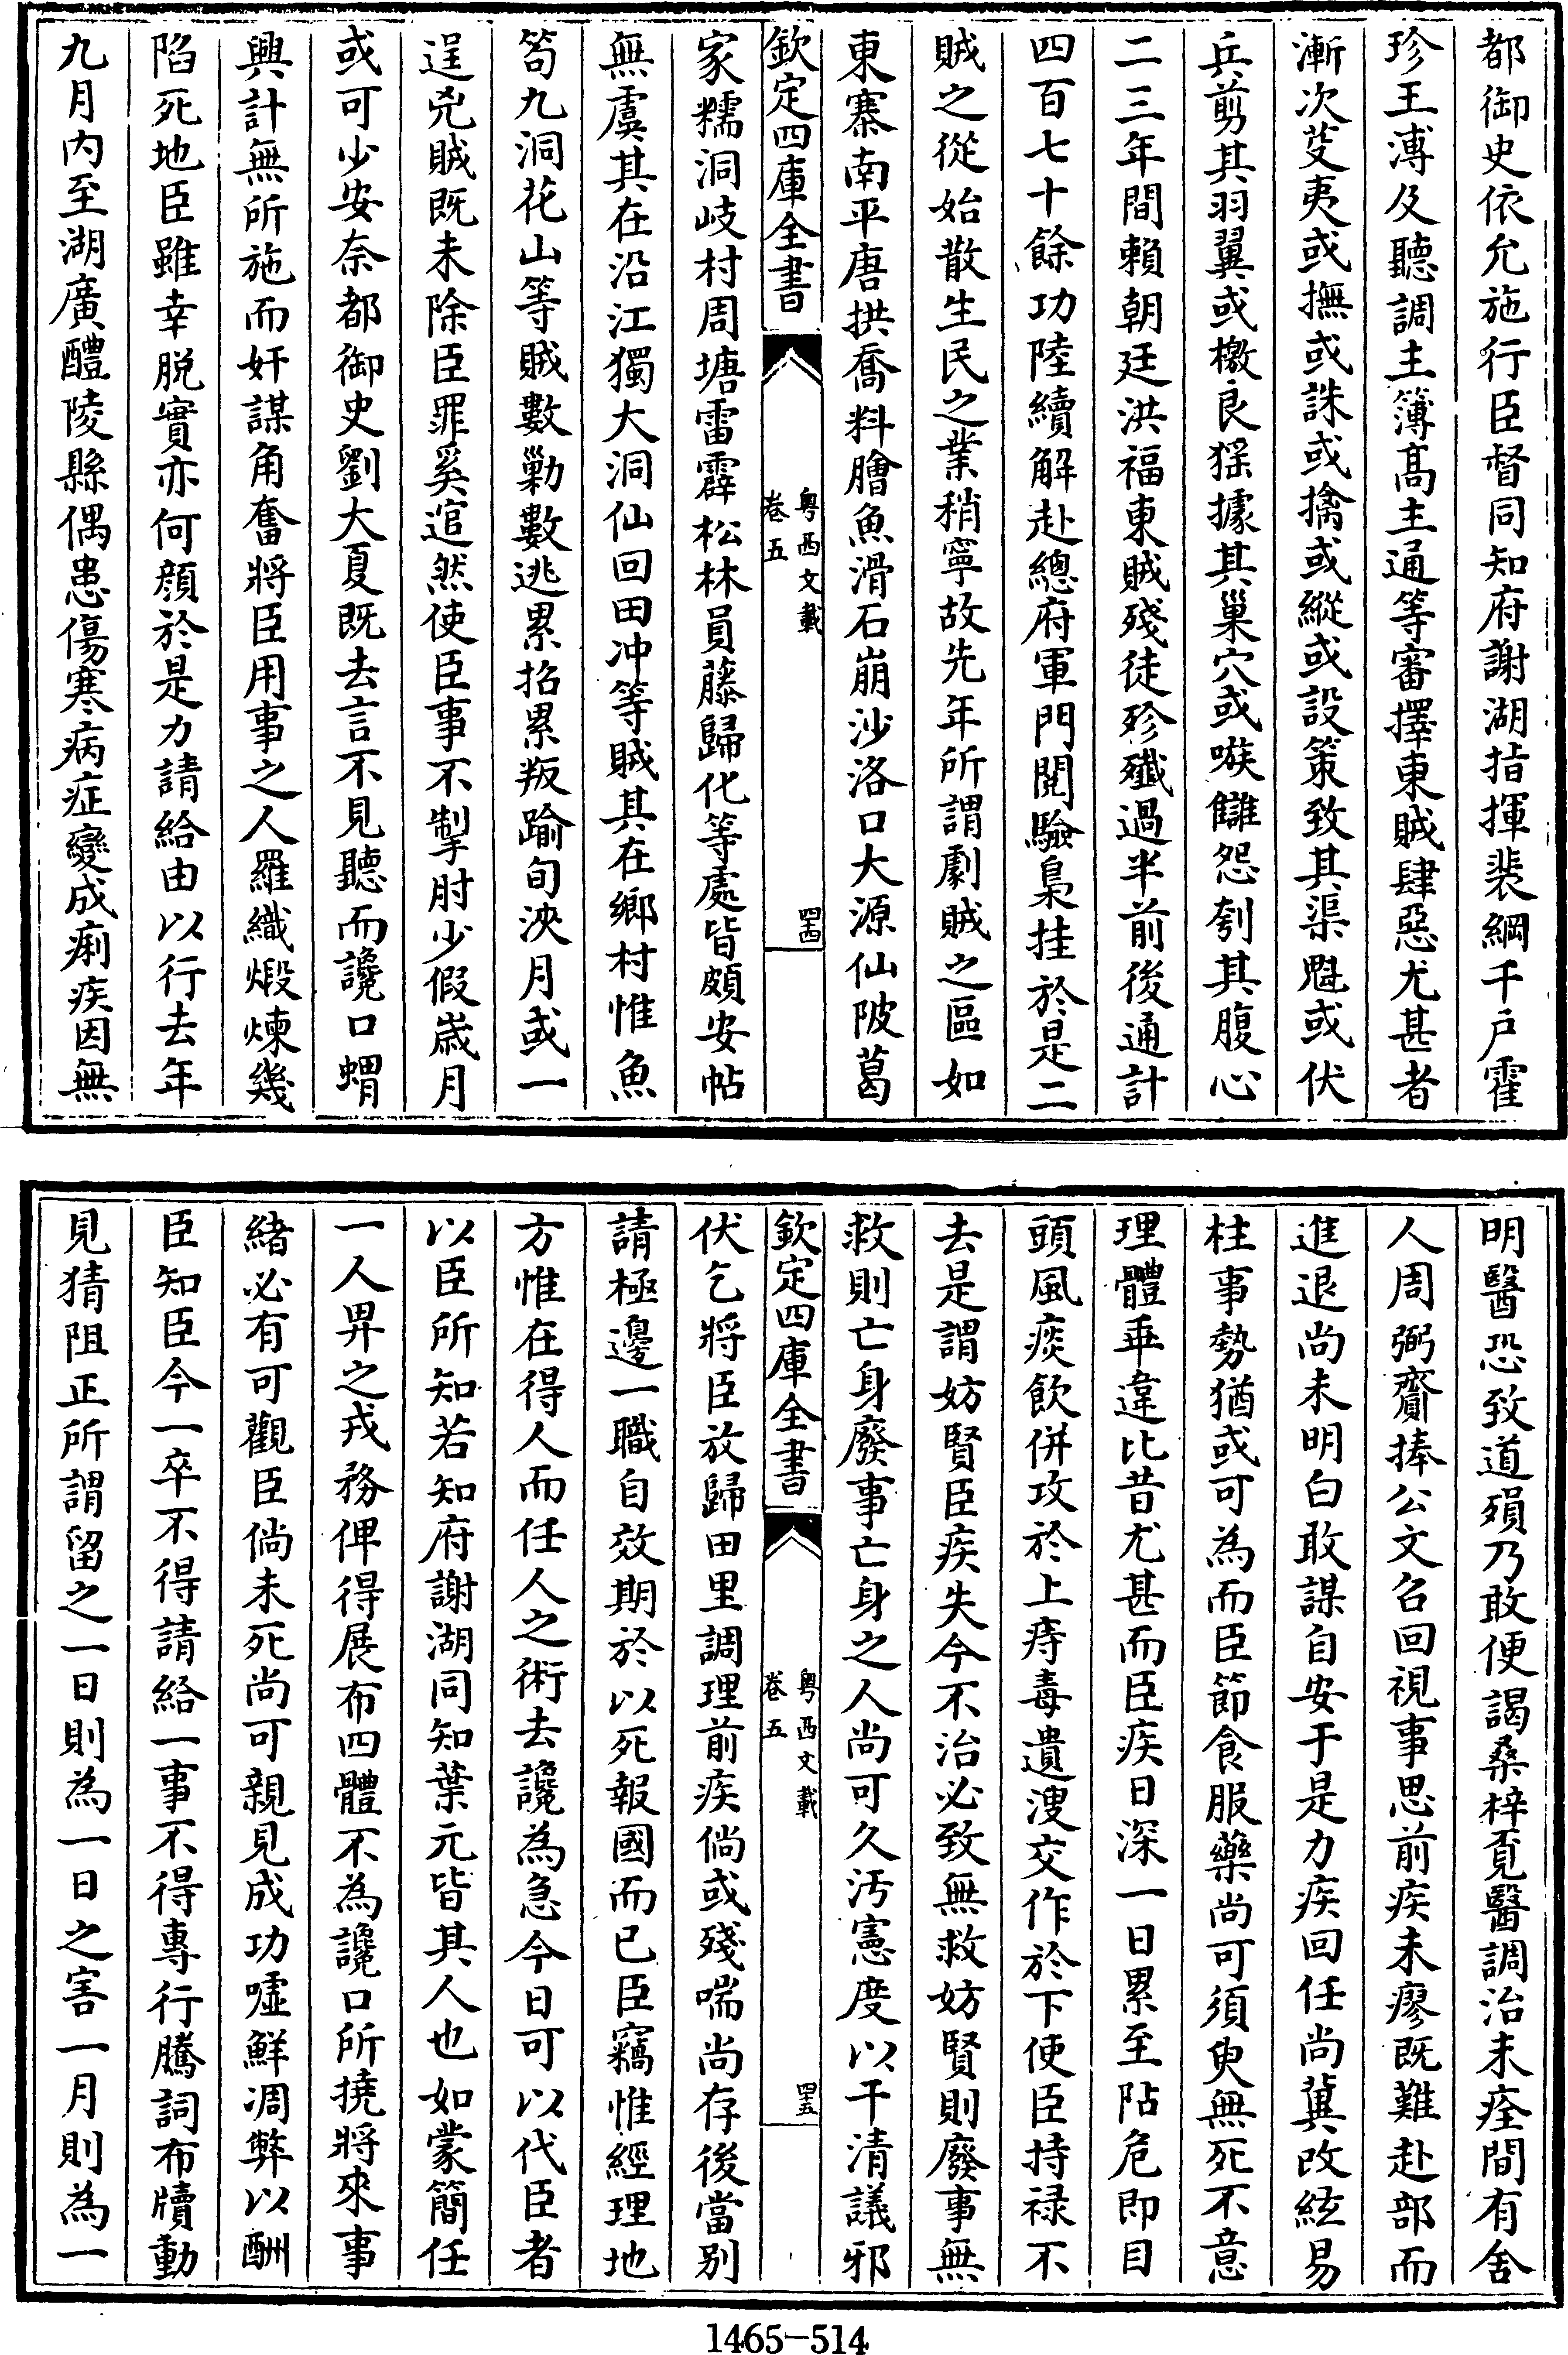 都御史依允施行臣督同知府謝湖指揮裴綱千戸霍
珍王溥及聽調主簿髙主通等審擇東賊肆惡尤甚者
漸次芟夷或撫或誅或擒或縱或設策致其渠魁或伏
兵剪其羽翼或檄良猺據其巢穴或嗾讎怨刳其腹心
二三年間賴朝廷洪福東賊殘徒殄殱過半前後通計
四百七十餘功陸續解赴總府軍門閱驗梟挂於是二
賊之從始散生民之業稍寧故先年所謂劇賊之區如
東寨南平唐拱喬料膾魚滑石崩沙洛口大源仙陂葛
欽定四庫全書
粤西文載
卷五
四十四
家糯洞岐村周塘雷霹松林員藤歸化等處皆頗安帖
無虞其在沿江獨大洞仙回田冲等賊其在鄉村惟魚
筍九洞花山等賊數勦數逃累招累叛踰旬浹月或一
逞兇賊既未除臣罪奚逭然使臣事不掣肘少假歳月
或可少安奈都御史劉大夏既去言不見聽而讒口蝟
興計無所施而奸謀角奮將臣用事之人羅織煅煉幾
陷死地臣雖幸脱實亦何顔於是力請給由以行去年
九月内至湖廣醴陵縣偶患傷寒病症變成痢疾因無
明醫恐致道殞乃敢便謁桑梓覔醫調治未痊間有舍
人周弼齎捧公文召回視事思前疾未瘳既難赴部而
進退尚未明白敢謀自安于是力疾回任尚冀改絃易
柱事勢猶或可為而臣節食服藥尚可須臾無死不意
理體乖違比昔尤甚而臣疾日深一日累至阽危即目
頭風痰飲併攻於上痔毒遺溲交作於下使臣持禄不
去是謂妨賢臣疾失今不治必致無救妨賢則廢事無
救則亡身廢事亡身之人尚可久汚憲度以干清議邪
欽定四庫全書
粤西文載
卷五
四十五
伏乞將臣放歸田里調理前疾倘或殘喘尚存後當别
請極邊一職自效期於以死報國而已臣竊惟經理地
方惟在得人而任人之術去讒為急今日可以代臣者
以臣所知若知府謝湖同知葉元皆其人也如蒙簡任
一人畀之戎務俾得展布四體不為讒口所撓將來事
緒必有可觀臣倘未死尚可親見成功嘘鮮凋弊以酬
臣知臣今一卒不得請給一事不得專行騰詞布牘動
見猜阻正所謂留之一日則為一日之害一月則為一
1465-514